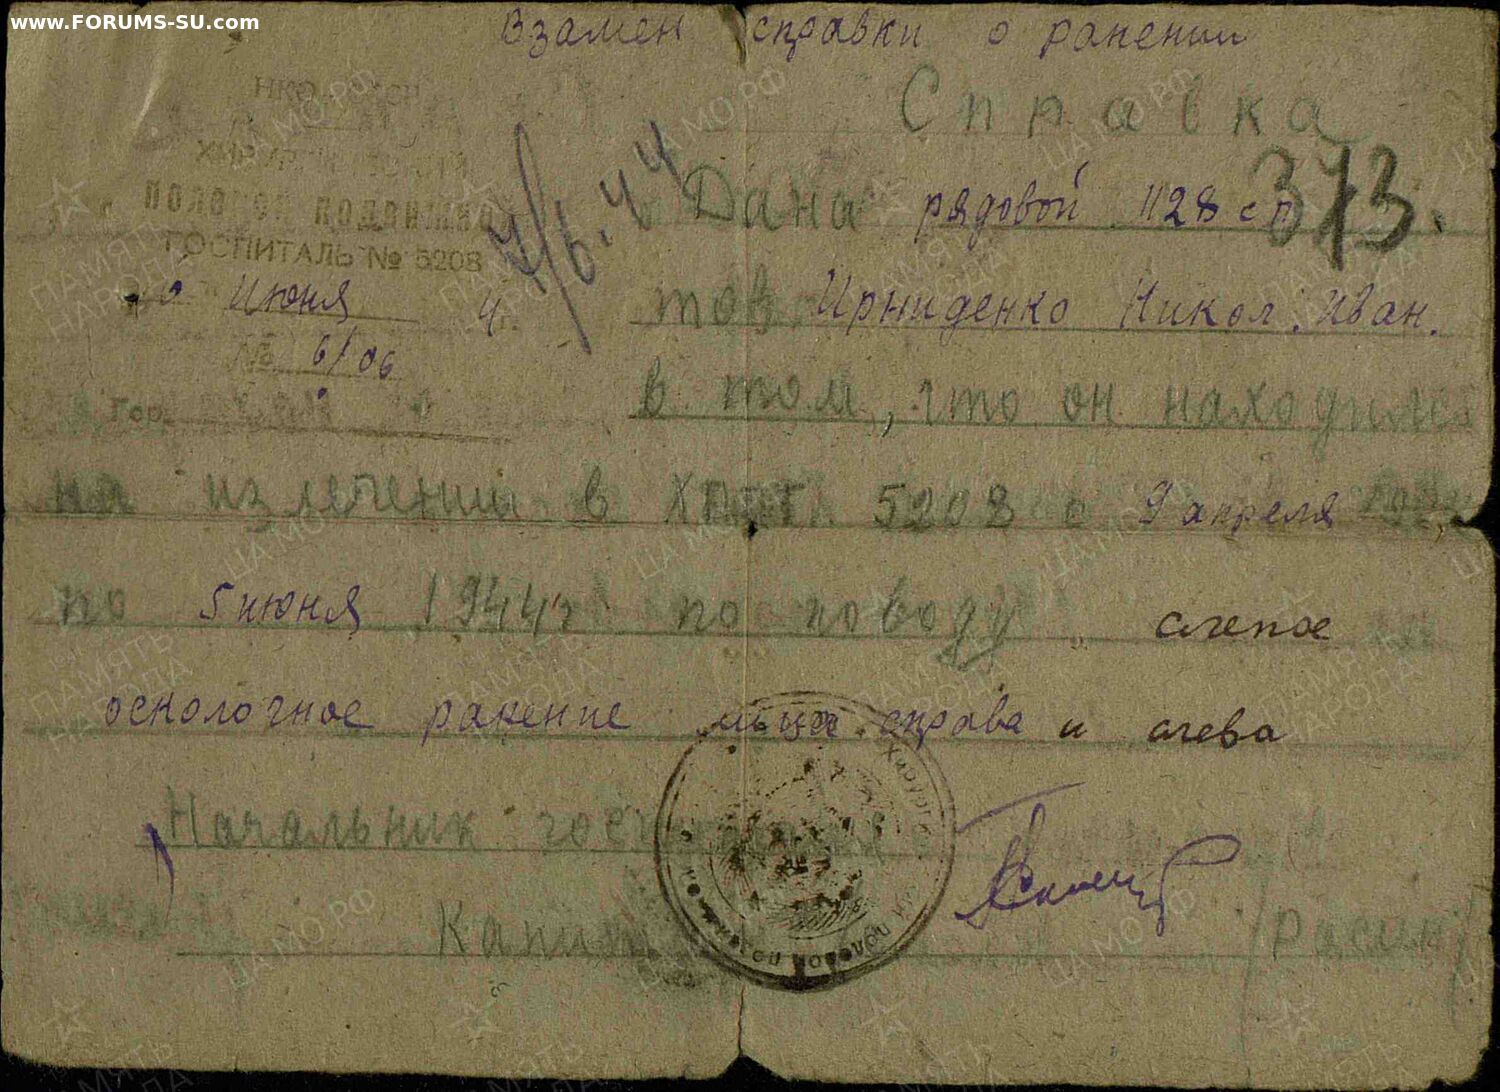 www.FORUMS-SU.com
Взамен справки о ранении
Справка
НКО
ХИРУРГИЧЕСКИЙ
ГОСПИТАЛЬ № 5208
Июня
№ 6/06
Гор.
7/6.44
373.
Дана рядовой 1128 сп
тов. Ирниденко Никол. Иван.
в том, что он находился
на излечении в ХППГ 5208 с 9 апреля
по 5 июня 1944г по поводу слепое
осколочное ранение справа и слева
Начальник госпиталя
Капит
/Расин/